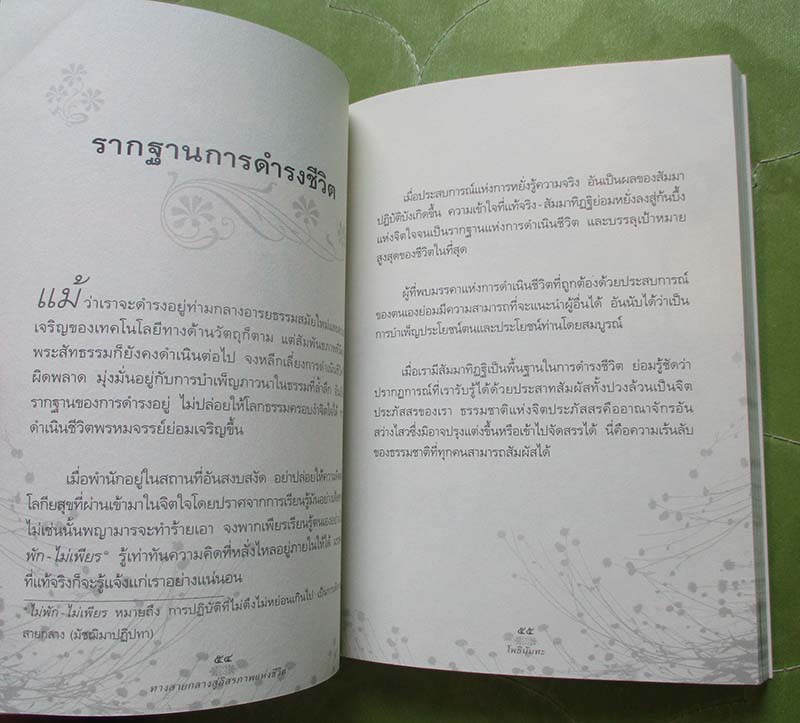 รากฐานการดำรงชีวิต
แม้ว่าเราจะดำรงอยู่ท่ามกลางอารยธรรมสมัยใหม่
เจริญของเทคโนโลยีทางด้านวัตถุก็ตาม แต่สัมพันธภาพ
พระสัทธรรมก็ยังคงดำเนินต่อไป จงหลีกเลี่ยงการดำเนิน
ผิดพลาด มุ่งมั่นอยู่กับการบำเพ็ญภาวนาในธรรมที่ล้ำลึก
รากฐานของการดำรงอยู่ ไม่ปล่อยให้โลกธรรมครอบงำจิตใจได้
ดำเนินชีวิตพรหมจรรย์ย่อมเจริญขึ้น
เมื่อพำนักอยู่ในสถานที่อันสงบสงัด อย่าปล่อยให้ความ
โลกียสุขที่ผ่านเข้ามาในจิตใจโดยปราศจากการเรียนรู้มันอย่าง
ไม่เช่นนั้นพญามารจะทำร้ายเอา จงพากเพียรเรียนรู้ตนเอง
พัก-ไม่เพียร* รู้เท่าทันความคิดที่หลั่งไหลอยู่ภายในให้ได้
ที่แท้จริงก็จะรู้แจ้งแก่เราอย่างแน่นอน
*ไม่พัก-ไม่เพียร หมายถึง การปฏิบัติที่ไม่ตึงไม่หย่อนเกินไป
สายกลาง (มัชฌิมาปฏิปทา)
๕๔
ทางสายกลางสู่อิสรภาพแห่งชีวิต
เมื่อประสบการณ์แห่งการหยั่งรู้ความจริง อันเป็นผลของสัมมา
ปฏิบัติบังเกิดขึ้น ความเข้าใจที่แท้จริง-สัมมาทิฏฐิย่อมหยั่งลงสู่ก้นบึ้ง
แห่งจิตใจจนเป็นรากฐานแห่งการดำเนินชีวิต และบรรลุเป้าหมาย
สูงสุดของชีวิตในที่สุด
ผู้ที่พบมรรคาแห่งการดำเนินชีวิตที่ถูกต้องด้วยประสบการณ์
ของตนเองย่อมมีความสามารถที่จะแนะนำผู้อื่นได้ อันนับได้ว่าเป็น
การบำเพ็ญประโยชน์ตนและประโยชน์ท่านโดยสมบูรณ์
เมื่อเรามีสัมมาทิฏฐิเป็นพื้นฐานในการดำรงชีวิต ย่อมรู้ชัดว่า
ปรากฏการณ์ที่เรารับรู้ได้ด้วยประสาทสัมผัสทั้งปวงล้วนเป็นจิต
ประภัสสรของเรา ธรรมชาติแห่งจิตประภัสสรคืออาณาจักรอัน
สว่างไสวซึ่งมิอาจปรุงแต่งขึ้นหรือเข้าไปจัดสรรได้ นี่คือความเร้นลับ
ของธรรมชาติที่ทุกคนสามารถสัมผัสได้
๕๕
โพธินันทะ